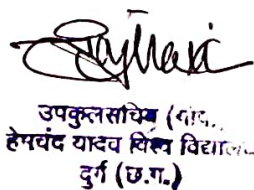 उपकुलसचिव (गोप..
हेमचंद यादव विश्व विद्याल..
दुर्ग (छ.ग.)